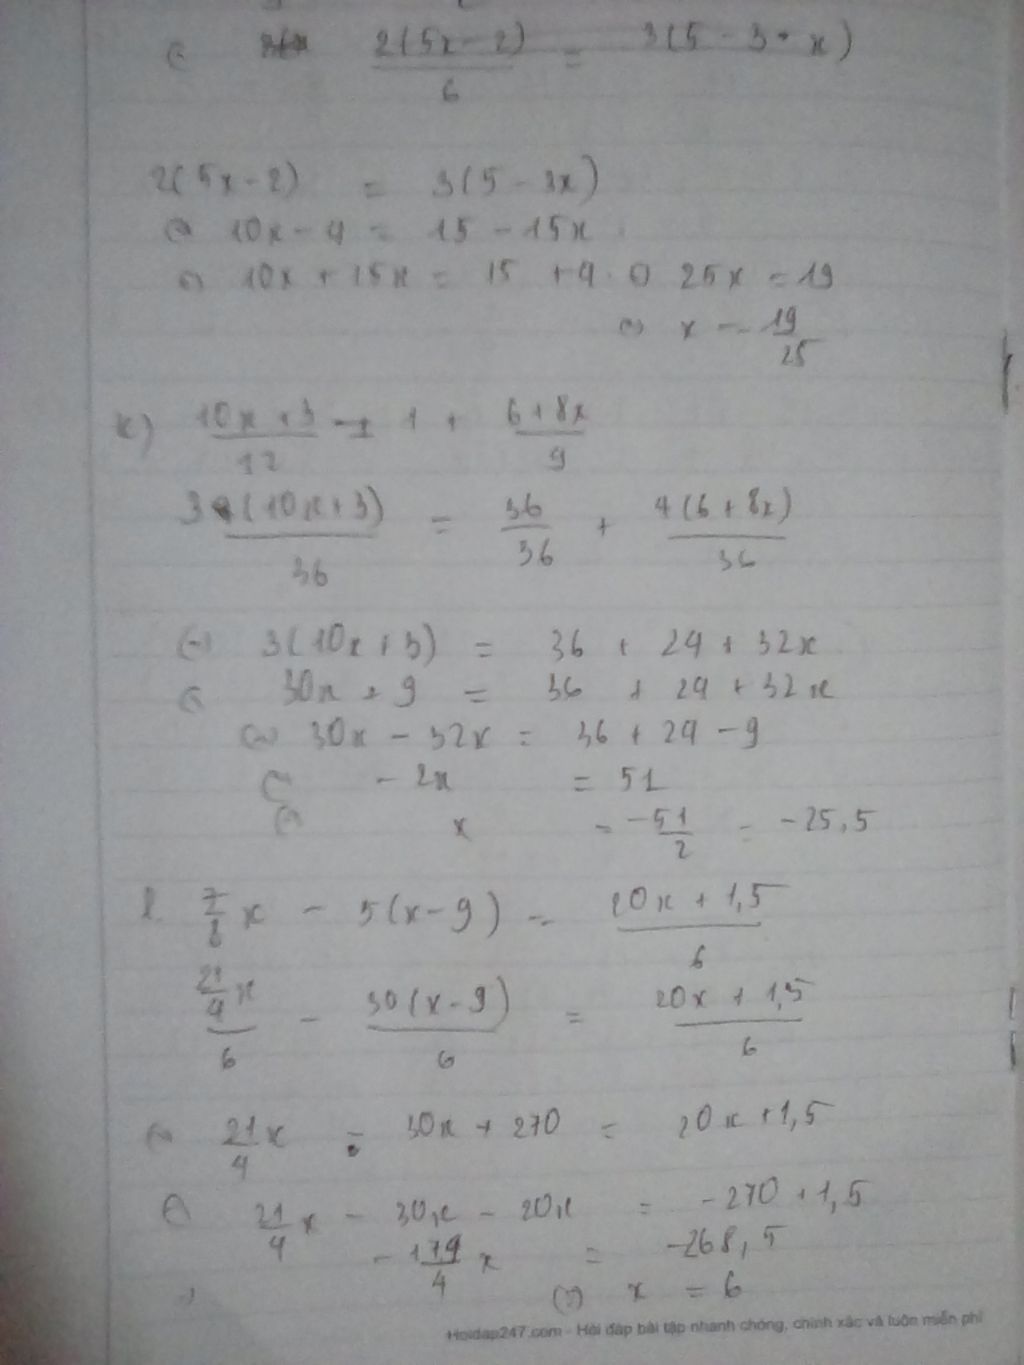 2(5x-2)/6 = 3(5-3·x)
2(5x-2) = 3(5-3x)
10x-4 = 15-15x
10x+15x = 15+4 25x = 19
x = 19/25
k) (10x+3)/12 = 1 + (6+8x)/9
3(10x+3)/36 = 36/36 + 4(6+8x)/36
3(10x+3) = 36 + 24 + 32x
30x+9 = 36 + 24 + 32x
30x-32x = 36+24-9
-2x = 51
x = -51/2 = -25,5
l. 7/8x - 5(x-9) = (20x+1,5)/6
(21/4x)/6 - 30(x-9)/6 = (20x+1,5)/6
21/4x - 30x+270 = 20x+1,5
21/4x - 30x - 20x = -270+1,5
-179/4x = -268,5
x = 6
Hoidap247.com - Hỏi đáp bài tập nhanh chóng, chính xác và luôn miễn phí